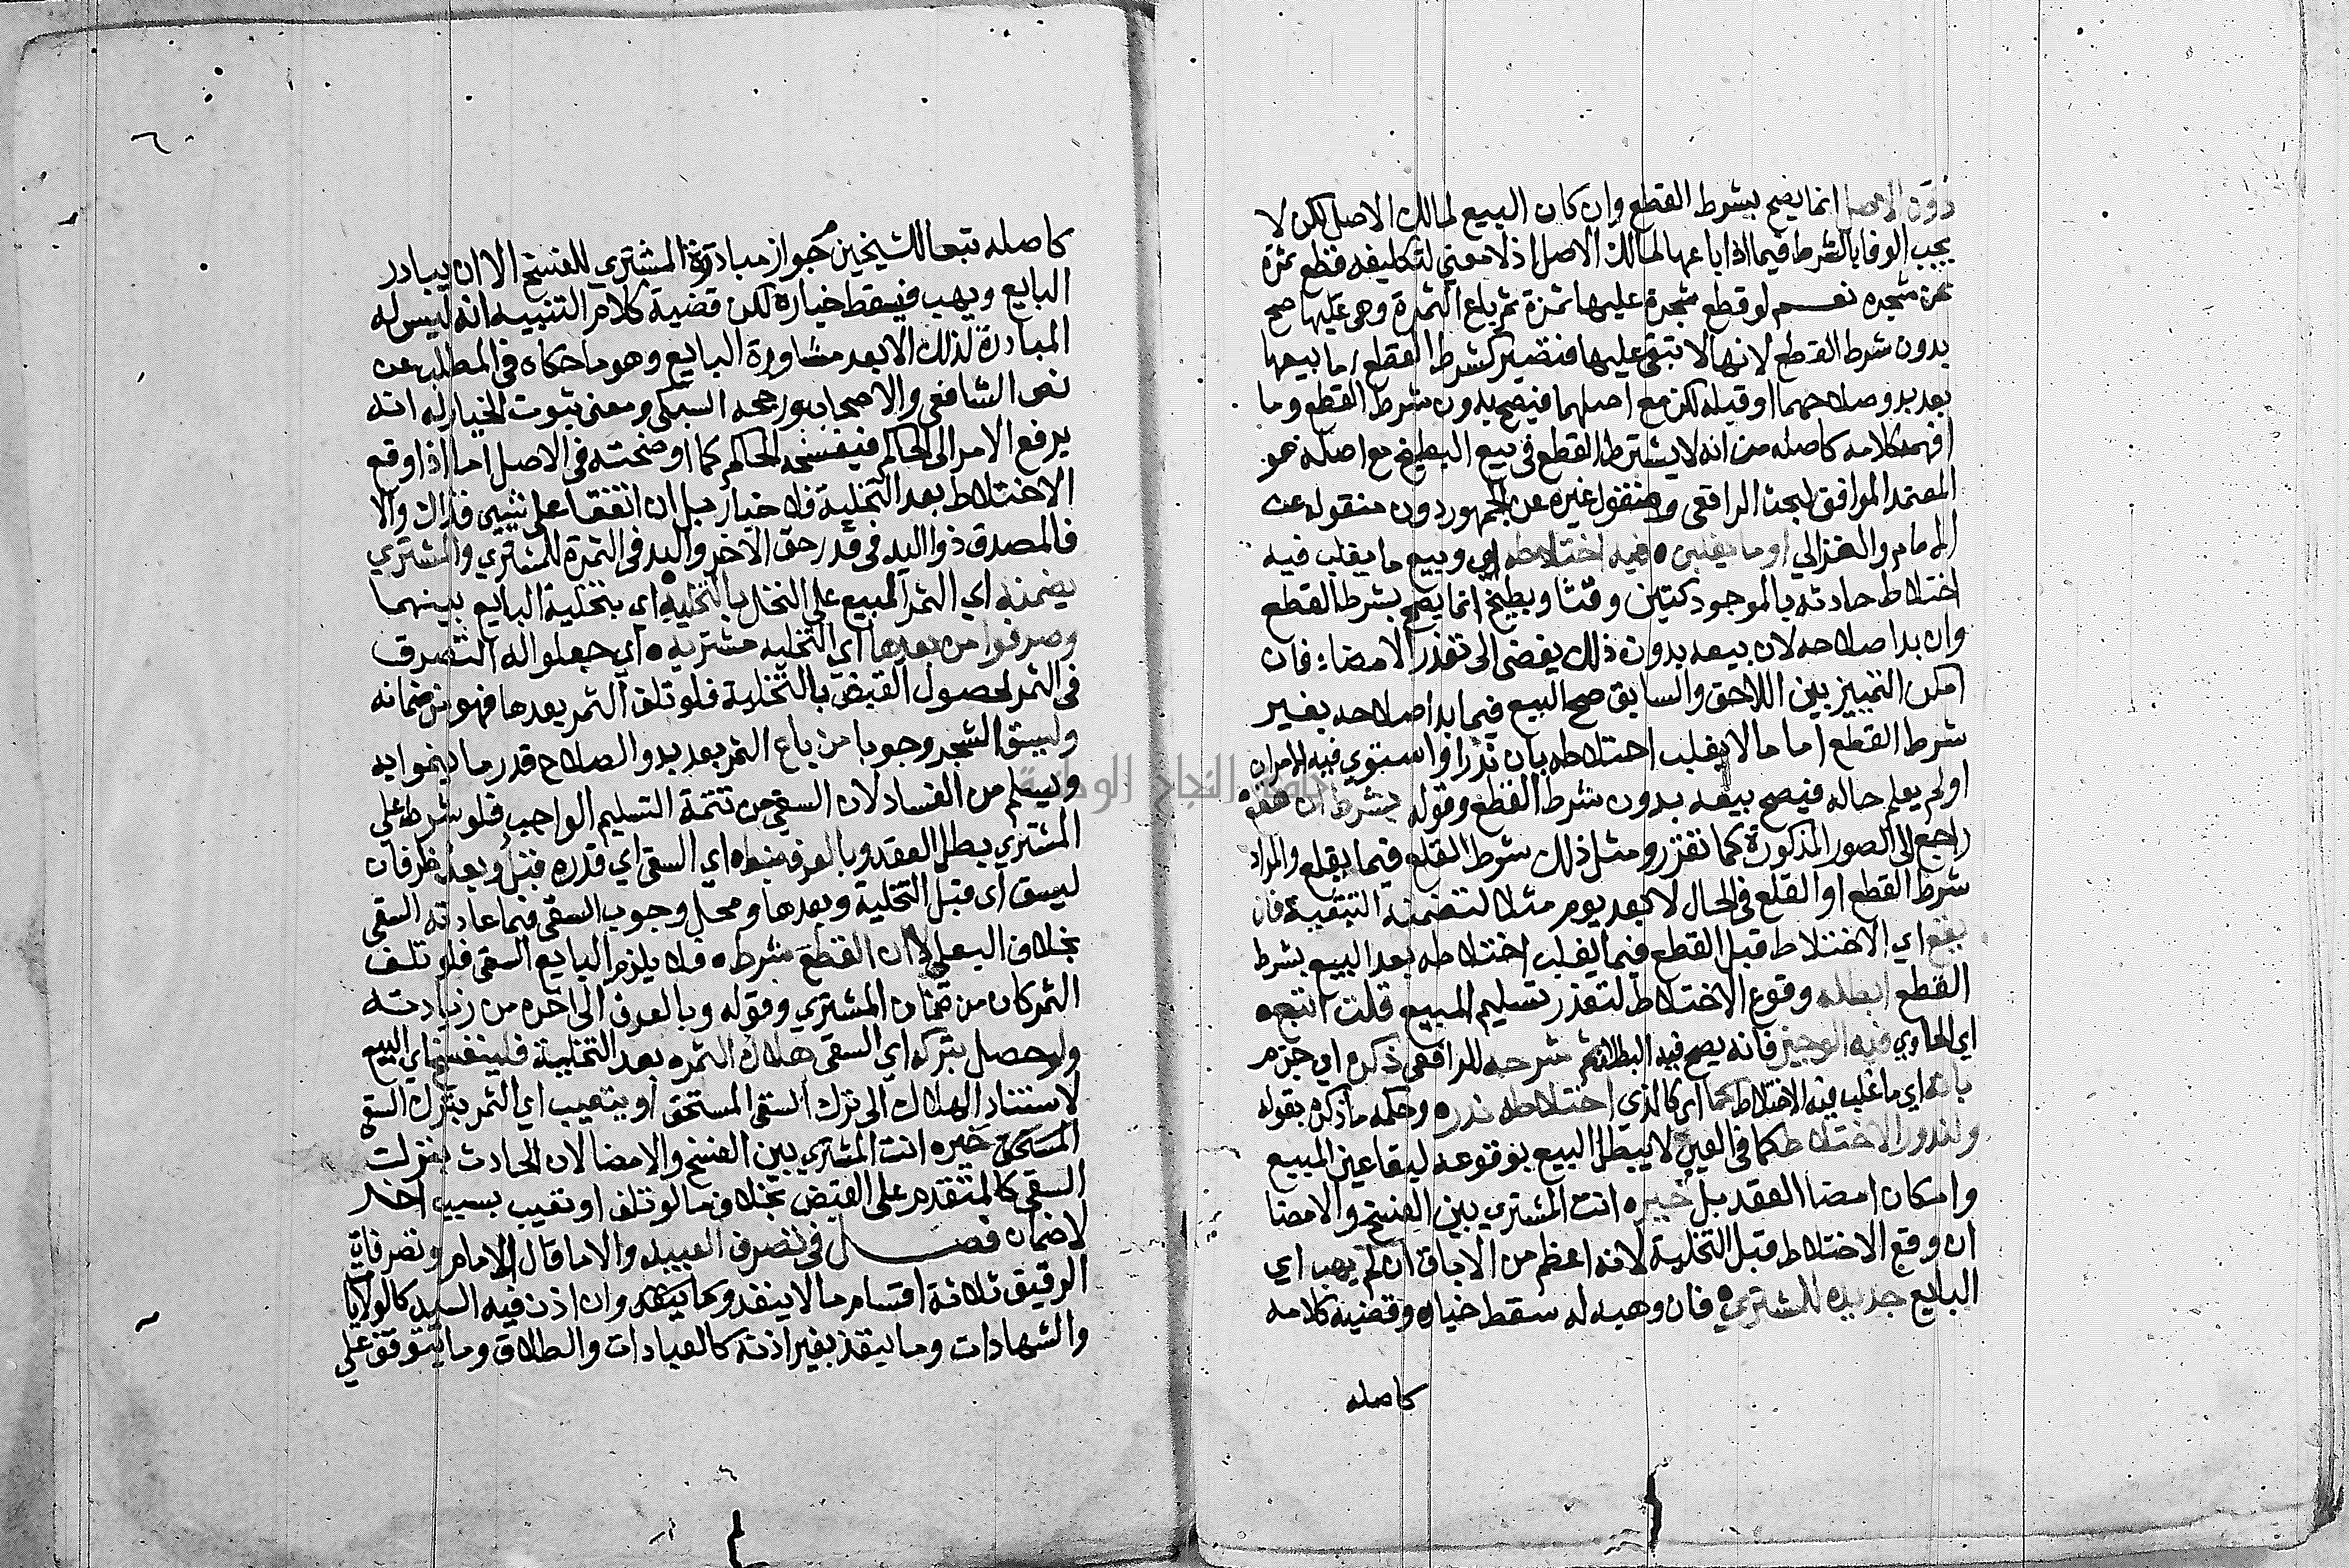 دون الاصل انما يصح بشرط القطع وان كان البيع لمالك الاصل لكن لا
يجب الوفا بالشرط فيما اذا باعها لمالك الاصل اذ لا معني لتكليفه قطع ثمرة
عن شجره نعم لو قطع شجرة عليها ثمرة ثم باع الثمرة وهي عليها صح
بدون شرط القطع لانها لا تبقي عليها فتصير كشرط القطع اما بيعها
بعد بدو صلاحهما او قبله لكن مع اصلهما فيصح بدون شرط القطع وما
افهمه كلامه كاصله من انه لا يشترط القطع في بيع البطيخ مع اصله هو
المعتمد الموافق لبحث الرافعي ومنقول غيره عن الجمهور دون منقوله عن
الامام والغزالي او ما يغلب فيه اختلاطه اي وبيع ما يغلب فيه
اختلاط حادثه بالموجود كتين وقثا وبطيخ انما يصح بشرط القطع
وان بدا صلاحه لان بيعه بدون ذلك يفضي الى تعذر الامضاء فان
امكن التمييز بين اللاحق والسابق صح البيع فيما بدا صلاحه بغير
شرط القطع اما ما لا يغلب اختلاطه بان ندر او استوي فيه الامران
او لم يعلم حاله فيصح بيعه بدون شرط القطع وقوله بشرط ان
راجع الى الصور المذكورة كما تقرر ومثل ذلك شرط القلع فيما يقلع والمراد
شرط القطع او القلع في الحال لا بعد يوم مثلا لتضمنه التبقية فان
يقع اي الاختلاط قبل القطع فيما يغلب اختلاطه بعد البيع بشرط
القطع ابطله وقوع الاختلاط لتعذر تسليم المبيع قلت اتبع
اي الحاوي فيه الوجيز فانه يصح فيه البطلان ثم شرحه للرافعي ذكر اي جزم
بانه اي ما غلب فيه الاختلاط كما اي كالذي اختلاطه ندر وحكمه ما ذكره بقوله
ولندور الاختلاط كما في العين لا يبطل البيع بوقوعه لبقا عين المبيع
وامكان امضا العقد بل خيره انت المشتري بين الفسخ والامضا
ان وقع الاختلاط قبل التخلية لانه اعظم من الاباق ان لم يهب اي
البايع جديده للمشتري فان وهبه له سقط خياره وقضية كلامه
كاصله
٦٠
كاصله تبعا للشيخين جواز مبادرة المشتري للفسخ الا ان يبادر
البايع ويهب فيسقط خياره لكن قضية كلام التنبيه انه ليس له
المبادرة لذلك الا بعد مشاورة البايع وهو ما حكاه في المطلب عن
نص الشافعي والاصحاب ورجحه السبكي ومعنى ثبوت الخيار له انه
يرفع الامر الى الحاكم فيفسخه الحاكم كما اوضحته في الاصل اما اذا وقع
الاختلاط بعد التخلية فلا خيار بل ان اتفقا على شيي فذاك والا
فالمصدق ذو اليد في قدر حق الاخر واليد في الثمرة للمشتري والمشتري
يضمنه اي الثمر المبيع على النخل بالتخليه اي بتخلية البايع بينهما
وصرفوا من بعدها اي التخليه مشتريه اي جعلوا له التصرف
في الثمر لحصول القبض بالتخلية فلو تلف الثمر بعدها فهو من ضمانه
وليسق الشجر وجوبا من باع الثمر بعد بدو الصلاح قدر ما ينموا به
ويسلم من الفساد لان السقي من تتمة التسليم الواجب فلو شرط على
المشتري بطل العقد وبالعرف ضبطه اي السقي اي قدره قبل وبعد ظرفان
ليسق اي قبل التخلية وبعدها ومحل وجوب السقي فيما عادته السقي
بخلاف البعلي لا ان القطع شرطه فلا يلزم البايع السقي فلو تلف
الثمر كان من ضمان المشتري وقوله وبالعرف الى اخره من زيادته
ولو حصل بتركه اي السقي هلاك الثمره بعد التخلية فلينفسخ اي البيع
لاستناد الهلاك الى ترك السقي المستحق او يتعيب اي الثمر بترك السقي
المستحق خيره انت المشتري بين الفسخ والامضا لان الحادث بترك
السقي كالمتقدم على القبض بخلاف ما لو تلف او تعيب بسبب اخر
لا ضمان فصل في تصرف العبيد والاما قال الامام وتصرفات
الرقيق ثلاثة اقسام ما لا ينفذ وان اذن فيه السيد كالولايات
والشهادات وما ينفذ بغير اذنه كالعبادات والطلاق وما يتوقف على
جامعة النجاح الوطنية